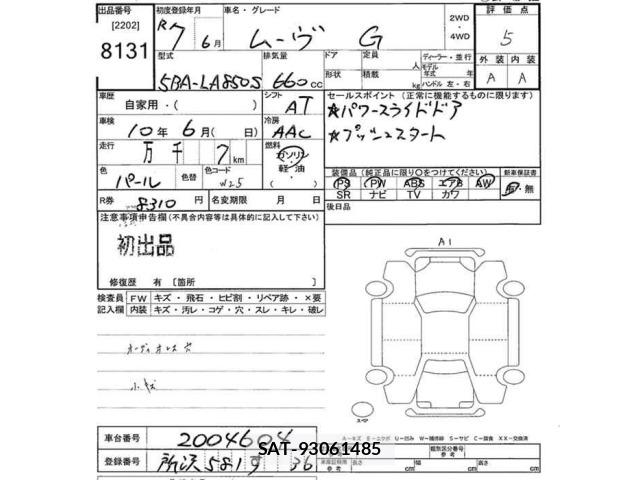 出品番号 初度登録年月 車名・グレード 2WD ・ 4WD 評価点
[2202] R7 年 6月 ムーヴ G 5
8131 型式 排気量 ドア 定員 ディーラー・並行 外装 内装
5BA-LA850S 660 cc 形状 人 積載 kg モデル年式 年式 ハンドル 左・右 A A
車歴 自家用・( ) シフト AT セールスポイント (正常に機能するものに限ります)
車検 10年 6月( 日) 冷房 AAC ★パワースライドドア
走行 万 千 7 km 燃料 ガソリン 軽油 ★プッシュスタート
色 パール 色替 色コード W25 装備品 (純正品に限り○をつけてください) 新車保証書
PS PW ABS エアB AW 有・無
SR ナビ TV カワ
R券 8310 円 名変期限 月 日 後日品
注意事項申告欄 (不具合内容等は具体的に記入して下さい)
初出品
A1
修復歴 有 [箇所 ]
検査員記入欄 FW キズ・飛石・ヒビ割・リペア跡・×要
内装 キズ・汚レ・コゲ・穴・スレ・キレ・破レ
オーディオレス 穴
小キズ
スペア
A－キズ
車台番号 2004604
登録番号 所沢 581 す 36
SAT-93061485
長さ cm 幅 cm 高さ cm